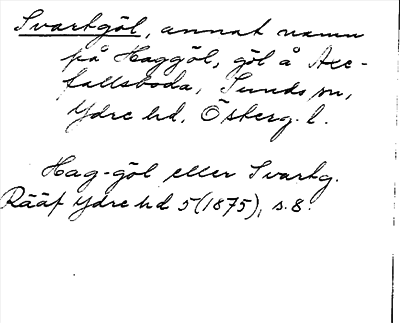 Svartgöl, annat namn
på Haggöl, göl å Axe-
fallsboda, Sunds sn,
Ydre hd, Österg. l.
Hag-göl eller Svartg.
Rääf Ydre hd 5(1875), s.8.